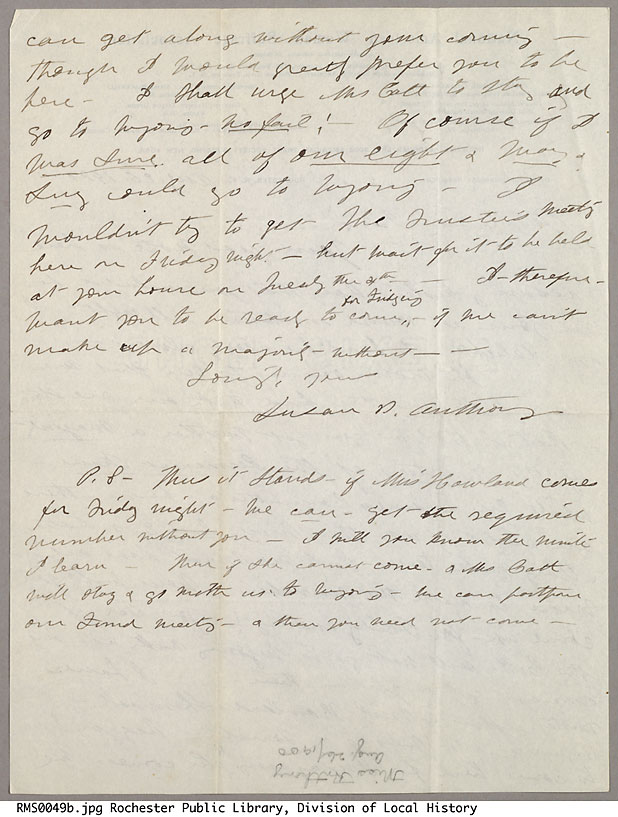 can get along without your coming —
though I would greatly prefer you to be
here — I shall urge Mrs Catt to stay and
go to Wyoming — no fail! — Of course if I
was sure all of our eight & Mary &
Lucy could go to Wyoming — I
wouldn't try to get the Trustees meeting
here on Friday night — but wait for it to be held
at your house on Tuesday the 4th — I — therefore —
want you to be ready to come, for Friday — if we can't
make up a majority — without — —
Lovingly yours
Susan B. Anthony
P. S — Thus it stands — if Miss Howland comes
for Friday night — we can — get the required
number without you — I will you know the minute
I learn — Then if she cannot come — & Mrs Catt
will stay & go with us to Wyoming — we can postpone
our Fund meeting — & then you need not come —
Miss Anthony
Aug. 26/1900
RMS0049b.jpg Rochester Public Library, Division of Local History